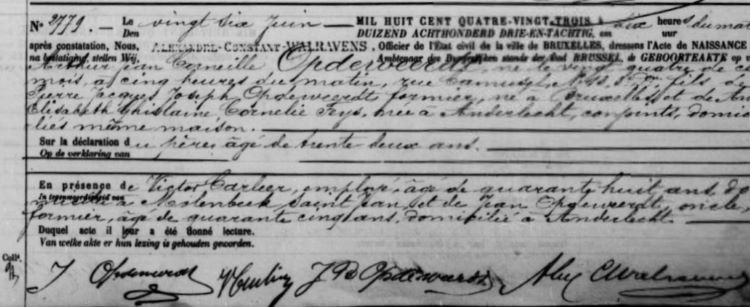 N° 2779. - Le vingt six Juin - MIL HUIT CENT QUATRE-VINGT-TROIS à dix heures du matin
Den DUIZEND ACHTHONDERD DRIE-EN-TACHTIG, om uur
après constatation, Nous, ALEXANDRE-CONSTANT-WALRAVENS, Officier de l'État civil de la ville de BRUXELLES, dressons l'Acte de NAISSANCE
na bevestiging, stellen Wij, Ambtenaar des Burgerlijken stands der stad BRUSSEL, de GEBOORTEAKTE op v
Jean Corneille Opdeweerdt, né le vingt quatre de ce
mois, à cinq heures du matin, rue
Pierre Jacques Joseph Opdeweerdt, fermier, né à Bruxelles et de
Elisabeth Ghislaine Cornélie Feys, née à Anderlecht, conjoints, domici
liés même maison.
Sur la déclaration du père, âgé de trente deux ans.
Op de verklaring van
En présence de Victor Carlier, employé, âgé de quarante huit ans, do
In tegenwoordigheid van
micilié à Molenbeek Saint Jean et de Jean Opdeweerdt, oncle,
fermier, âgé de quarante cinq ans, domicilié à Anderlecht.
Duquel acte il leur a été donné lecture.
Van welke akte er hun lezing is gehouden geworden.
Coll.
J Opdeweerdt J B Opdeweerdt Alex C Walravens